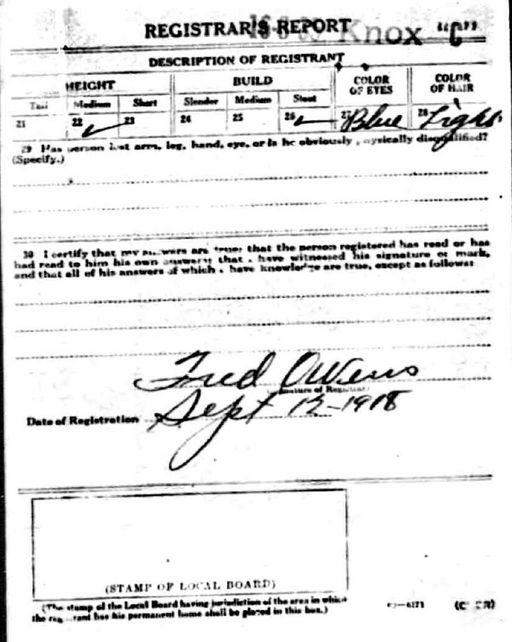 REGISTRAR'S REPORT
Knox "C"
DESCRIPTION OF REGISTRANT
HEIGHT BUILD COLOR OF EYES COLOR OF HAIR
Tall Medium Short Slender Medium Stout
21 22 ✓ 23 24 25 26 ✓ 27 Blue 28 Light
29 Has person lost arm, leg, hand, eye, or is he obviously physically disqualified?
(Specify.)
30 I certify that my answers are true; that the person registered has read or has
had read to him his own answers; that I have witnessed his signature or mark,
and that all of his answers of which I have knowledge are true, except as follows:
Fred Owens
Signature of Registrar
Date of Registration Sept 12-1918
(STAMP OF LOCAL BOARD)
(The stamp of the Local Board having jurisdiction of the area in which
the registrant has his permanent home shall be placed in this box.)
—6171